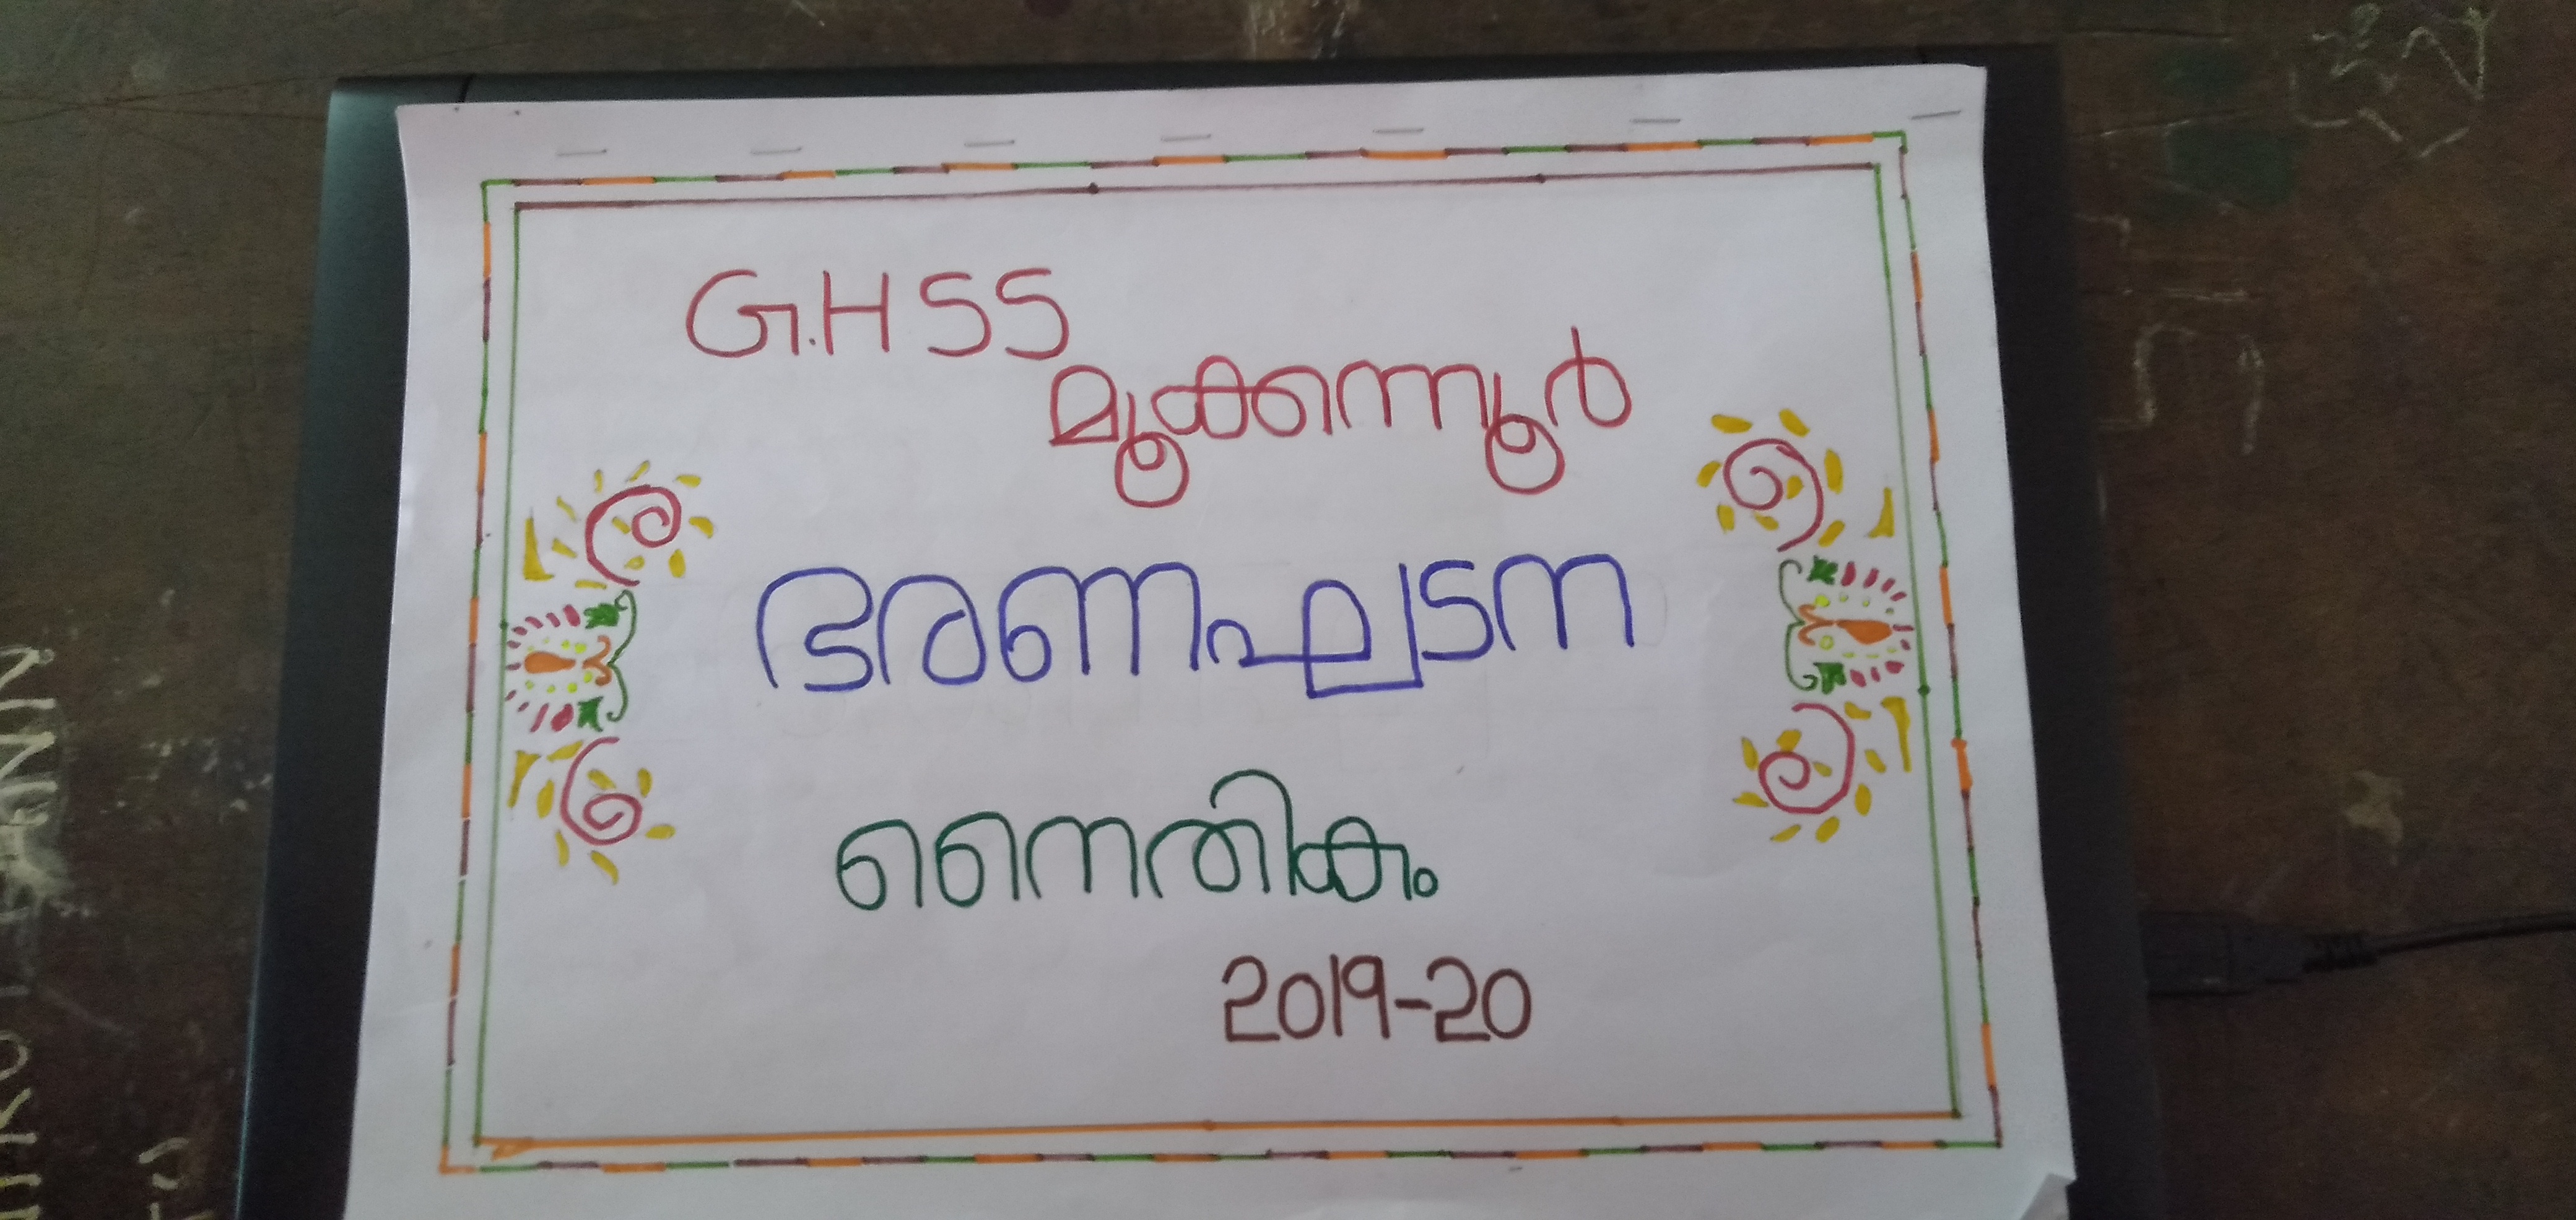 G.HSS
മൂക്കന്നൂർ
ഭരണഘടന
നൈതികം
2019-20